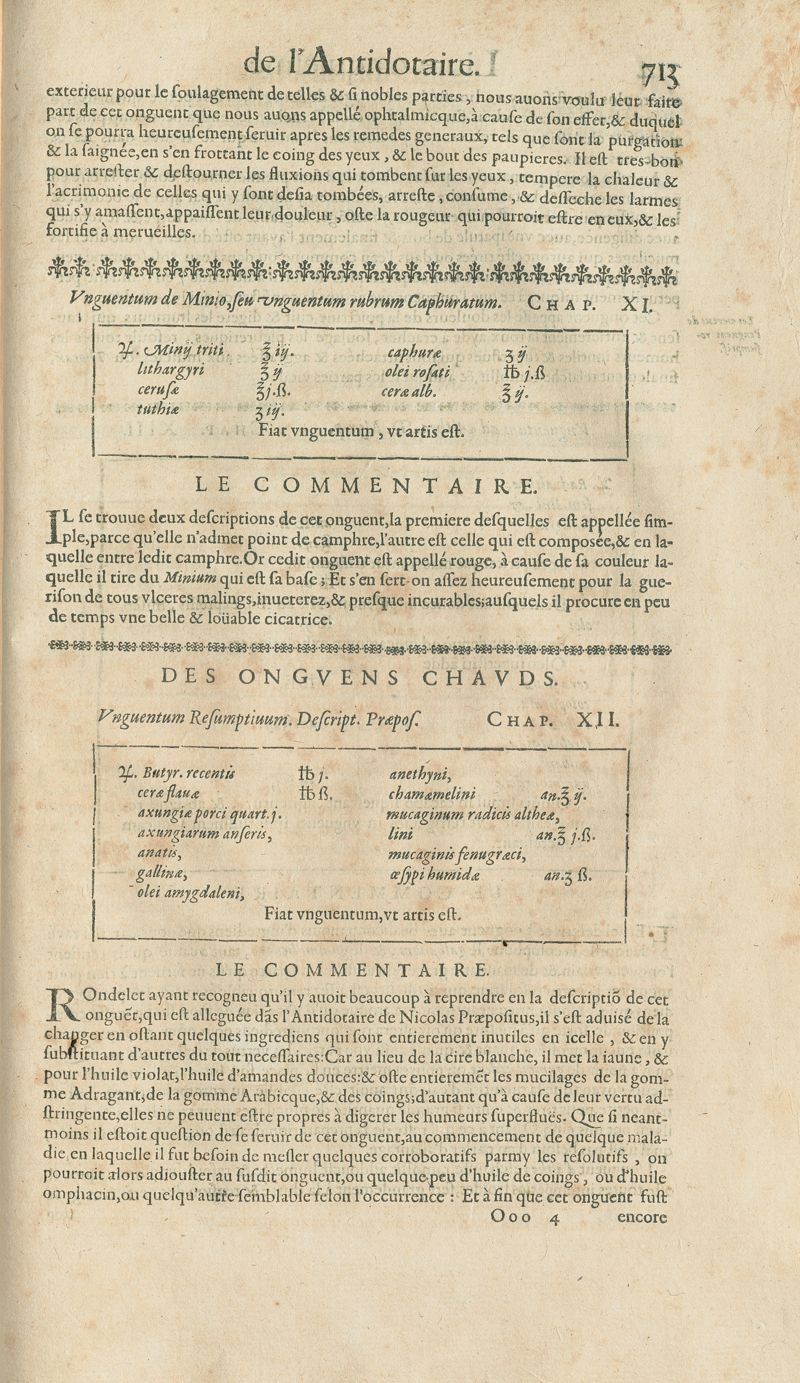 de l'Antidotaire. 713
exterieur pour le ſoulagement de telles & ſi nobles parties, nous auons voulu leur faire
part de cet onguent que nous auons appellé ophtalmicque, à cauſe de ſon effet, & duquel
on ſe pourra heureuſement ſeruir apres les remedes generaux, tels que ſont la purgation
& la ſaignée, en s'en frottant le coing des yeux, & le bout des paupieres. Il eſt tres-bon
pour arreſter & deſtourner les fluxions qui tombent ſur les yeux, tempere la chaleur &
l'acrimonie de celles qui y ſont deſia tombées, arreſte, conſume, & deſſeche les larmes
qui s'y amaſſent, appaiſſent leur douleur, oſte la rougeur qui pourroit eſtre en eux, & les
fortifie à merueilles.
Vnguentum de Minio, ſeu vnguentum rubrum Caphuratum. CHAP. XI.
♃. Minÿ triti ℥ iÿ. caphuræ ʒ ÿ
lithargyri ℥ ÿ olei roſati ℔ j.ß
ceruſæ ℥j.ß. ceræ alb. ℥ ÿ.
tuthiæ ʒ iÿ.
Fiat vnguentum, vt artis eſt.
LE COMMENTAIRE.
IL ſe trouue deux deſcriptions de cet onguent, la premiere deſquelles eſt appellée ſim-
ple, parce qu'elle n'admet point de camphre, l'autre eſt celle qui eſt compoſée, & en la-
quelle entre ledit camphre. Or cedit onguent eſt appellé rouge, à cauſe de ſa couleur la-
quelle il tire du Minium qui eſt ſa baſe; Et s'en ſert-on aſſez heureuſement pour la gue-
riſon de tous vlceres malings, inueterez, & preſque incurables; auſquels il procure en peu
de temps vne belle & loüable cicatrice.
DES ONGVENS CHAVDS.
Vnguentum Reſumptiuum. Deſcript. Præpoſ. CHAP. XII.
♃. Butyr. recentis ℔ j. anethyni,
ceræ flauæ ℔ ß. chamæmelini an.℥ ÿ.
axungiæ porci quart. j. mucaginum radicis altheæ,
axungiarum anſeris, lini an.℥ j.ß.
anatis, mucaginis fenugræci,
gallinæ, œſypi humidæ an.ʒ ß.
olei amygdaleni,
Fiat vnguentum, vt artis eſt.
LE COMMENTAIRE.
ROndelet ayant recogneu qu'il y auoit beaucoup à reprendre en la deſcriptiõ de cet
onguẽt, qui eſt alleguée dãs l'Antidotaire de Nicolas Præpoſitus, il s'eſt aduiſé de la
changer en oſtant quelques ingrediens qui ſont entierement inutiles en icelle, & en y
ſubſtituant d'autres du tout neceſſaires: Car au lieu de la cire blanche, il met la iaune, &
pour l'huile violat, l'huile d'amandes douces: & oſte entieremẽt les mucilages de la gom-
me Adragant, de la gomme Arabicque, & des coings; d'autant qu'à cauſe de leur vertu ad-
ſtringente, elles ne peuuent eſtre propres à digerer les humeurs ſuperfluës. Que ſi neant-
moins il eſtoit queſtion de ſe ſeruir de cet onguent, au commencement de quelque mala-
die, en laquelle il fut beſoin de meſler quelques corroboratifs parmy les reſolutifs, on
pourroit alors adiouſter au ſuſdit onguent, ou quelque peu d'huile de coings, ou d'huile
omphacin, ou quelqu'autre ſemblable ſelon l'occurrence: Et à fin que cet onguent fuſt
Ooo 4 encore